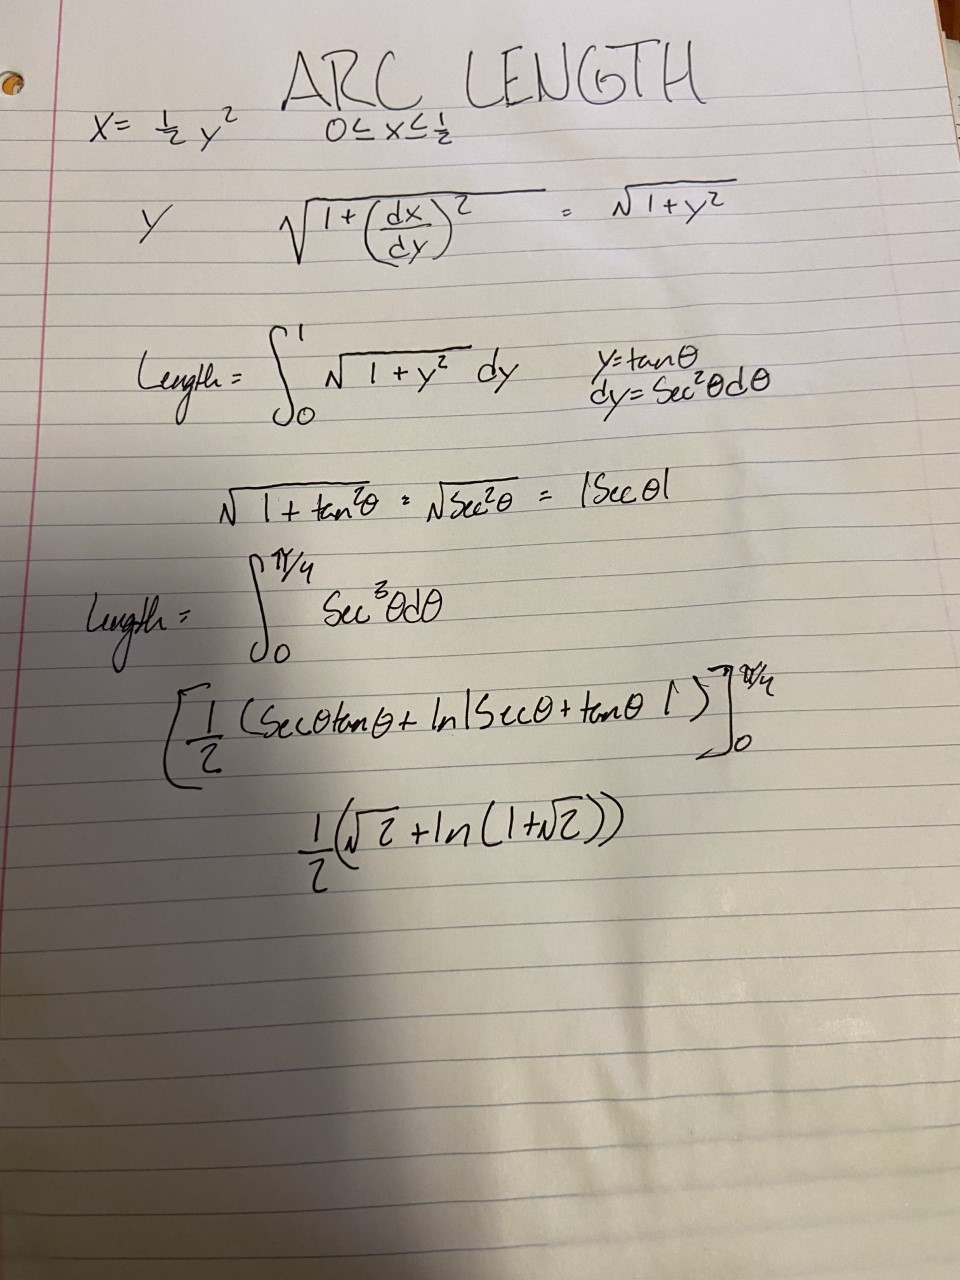 ARC LENGTH
x = 1/2 y² 0 ≤ x ≤ 1/2
y √(1 + (dx/dy)²) = √(1+y²)
Length = ∫₀¹ √(1 + y²) dy y = tanθ
dy = Sec²θdθ
√(1 + tan²θ) = √(Sec²θ) = |Sec θ|
Length = ∫₀^(π/4) Sec³θdθ
[1/2 (Secθtanθ + ln|Secθ + tanθ|)]₀^(π/4)
1/2(√2 + ln(1+√2))